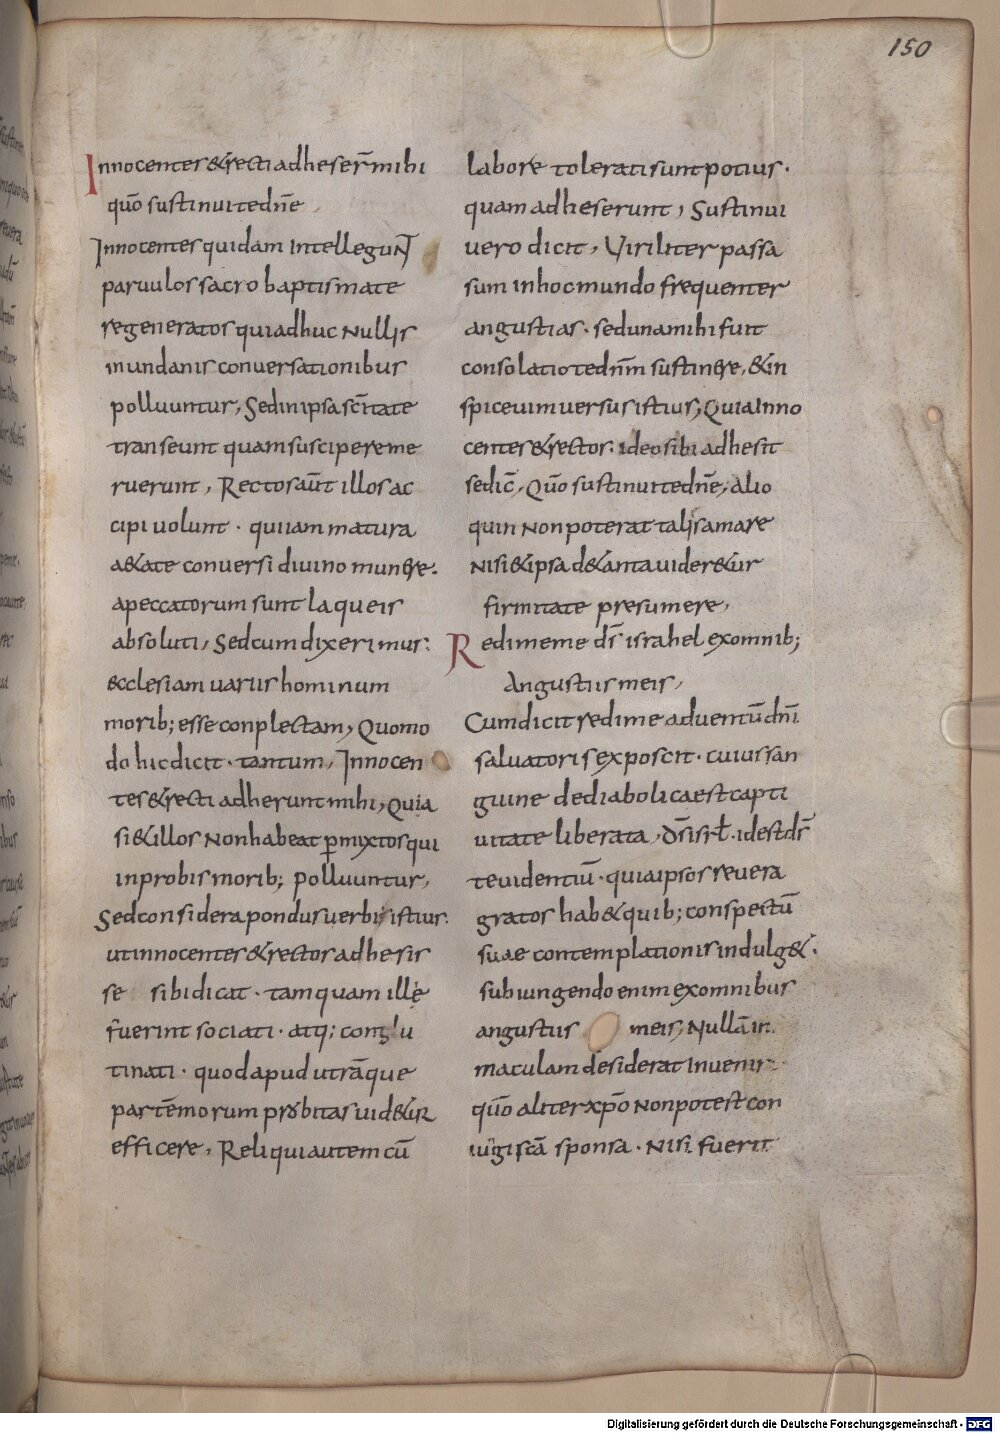 150
Innocentes & recti adheser̄ mihi
quō sustinui te dnē
Innocentes quidam intellegunt
paruulos sacro baptismate
regeneratos qui adhuc nullis
inundanis conuersationibus
polluuntur, Sed in ipsa sc̄itate
transeunt quam suscipere me
ruerunt, Rectos aūt illos ac
cipi uolunt · qui iam matura
a&ate conuersi diuino munere·
a peccatorum sunt laqueis
absoluti, Sed cum dixerimus:
ecclesiam uariis hominum
morib; esse conplectam, Quomo
do hic dicit · tantum, Innocen
tes & recti adherunt mihi, Quia
si & illos non habeat p̄mixtos qui
inprobis morib; polluuntur,
Sed considera pondus uerbi istius·
ut innocentes & rectos adhesis
se sibi dicat · tamquam ille
fuerint sociati · atq; conglu
tinati · quod apud utrāque
partē morum probitas uid&ur
efficere, Reliqui autem cū
labore tolerati sunt potius·
quam adheserunt, Sustinui
uero dicit, Uiriliter passa
sum in hoc mundo frequenter
angustias · sed una mihi fuit
consolatio te dnm̄ sustinere, & in
spice uim uersus istius, Quia inno
centes & rectos · ideo sibi adhesit
se dic̄, Quō sustinui te dnē, Alio
quin non poterat talis amare
nisi & ipsa de tanta uider&ur
firmitate presumere,
Redime me ds̄ israhel ex omnib;
angustiis meis,
Cum dicit redime aduentū dnī
saluatoris exposcit · cuius san
guine de diabolica est capti
uitate liberata, Ds̄ isrł · id est ds̄
te uidentiū · quia ipsos reuera
gratos hab& quib; conspectū
suae contemplationis indulg&·
subiungendo enim ex omnibus
angustiis meis, Nullā in
maculam desiderat inuenir
quō aliter xp̄o non potest con
iungi sc̄ā sponsa · Nisi fuerit
Digitalisierung gefördert durch die Deutsche Forschungsgemeinschaft - DFG